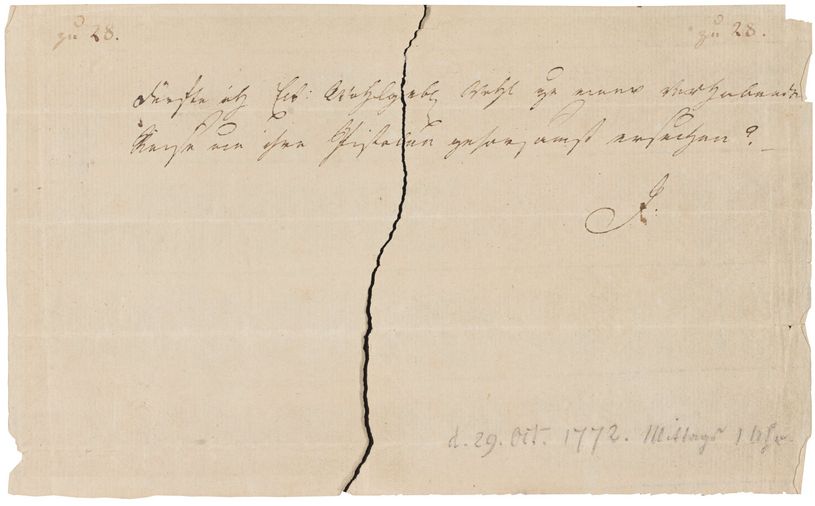 zu 28.
zu 28.
Dürfte ich Ew: Wohlgeb. wohl zu einer vorhabenden
Reise um ihre Pistolen gehorsamst ersuchen?
J.
d. 29. Oct. 1772. Mittags 1 Uhr.